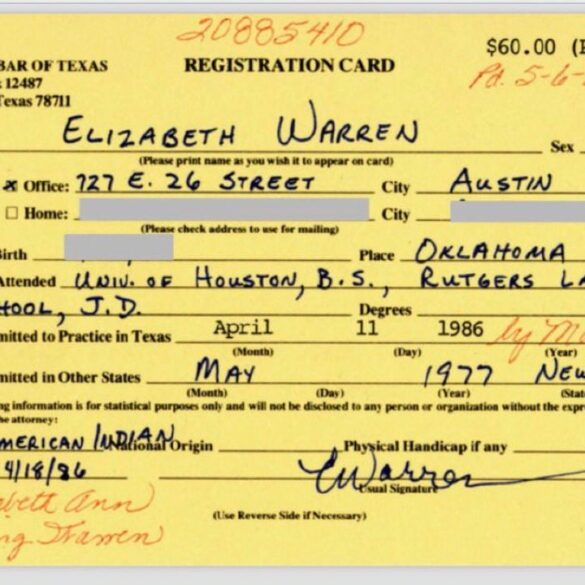 20885410
$60.00
BAR OF TEXAS
REGISTRATION CARD
12487
Pd. 5-6-
Texas 78711
ELIZABETH WARREN
Sex
(Please print name as you wish it to appear on card)
Office: 727 E. 26 STREET City AUSTIN
Home: City
(Please check address to use for mailing)
Birth Place OKLAHOMA
Attended UNIV. OF HOUSTON, B.S., RUTGERS LA
HOOL, J.D. Degrees
mitted to Practice in Texas April 11 1986 by
(Month) (Day) (Year)
mitted in Other States MAY 1977 NEW
(Month) (Day) (Year) (Stat
ng information is for statistical purposes only and will not be disclosed to any person or organization without the expr
the attorney:
AMERICAN INDIAN National Origin Physical Handicap if any
4/18/86 EWarren
Usual Signature
beth Ann
(Use Reverse Side if Necessary)
ng Warren